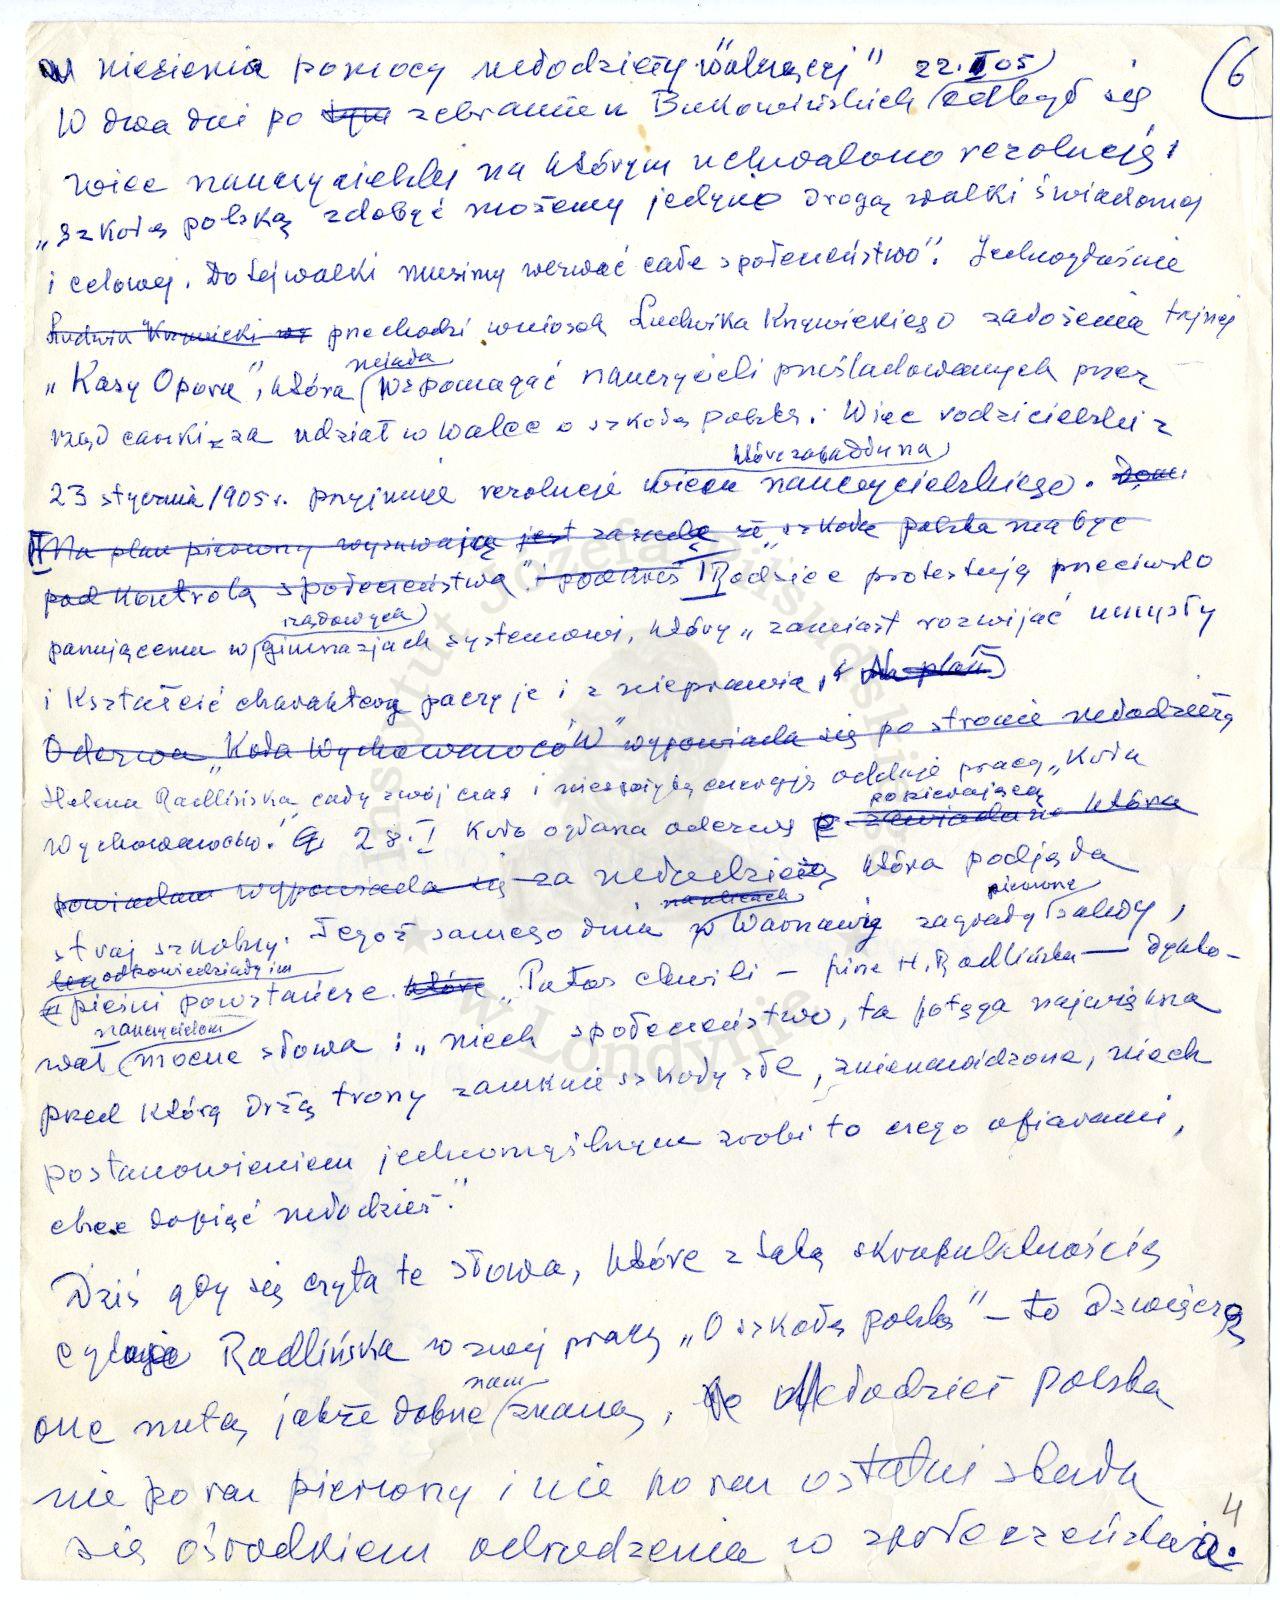 w niesienia pomocy młodzieży "walczącej" 22.I 05
6
W dwa dni po tym zebraniu u Bukowińskich odbył się
wiec nauczycielski na którym uchwalono rezolucję:
„szkołę polską zdobyć możemy jedynie drogą walki świadomej
i celowej. Do tej walki musimy wezwać całe społeczeństwo". Jednogłośnie
Ludwik Krzywicki przechodzi wniosek Ludwika Krzywickiego założenia tajnej
miała
„Kasy Oporu", która wspomagać nauczycieli prześladowanych przez
rząd carski za udział w walce o szkołę polską. Wiec rodzicielski z
które zapadły na
23 stycznia 1905 r. przyjmuje rezolucje wiecu nauczycielskiego.
Na plan pierwszy wysuwają jest zasadę że „szkoła polska ma być
pod kontrolą społeczeństwa" i podkreś Rodzice protestują przeciwko
rządowych
panującemu w gimnazjach systemowi, który „zamiast rozwijać umysły
i kształcić charaktery paczy je i znieprawia," Na plan
Odezwa „Koła Wychowawców" wypowiada się po stronie młodzieży
Helena Radlińska cały swój czas i niespożytą energję oddaje pracy „Koła
popierającą
Wychowawców." 28.I Koło ogłasza odezwę zawiadam która
powiadam wypowiada się za młodzieżą która podjęła
na ulicach pierwsze
strajk szkolny. Tegoż samego dnia w Warszawie zagrały salwy,
odpowiedziały im
pieśni powstańcze. które „Patos chwili – pisze H. Radlińska – dykto-
nauczycielom
wał mocne słowa: „niech społeczeństwo, ta potęga największa
przed którą drżą trony zamknie szkoły złe, znienawidzone, niech
postanowieniem jednomyślnym zrobi to czego ofiarami,
chce dopiąć młodzież."
Dziś gdy się czyta te słowa, które z taką skrupulatnością
cytuje Radlińska w swej pracy „O szkołę polską" – to dźwięczą
nam
one nutą jakże dobrze znaną, że Młodzież polska
nie po raz pierwszy i nie po raz ostatni stała
się ośrodkiem odrodzenia w społeczeństwie.
4
Instytut Józefa Piłsudskiego w Londynie